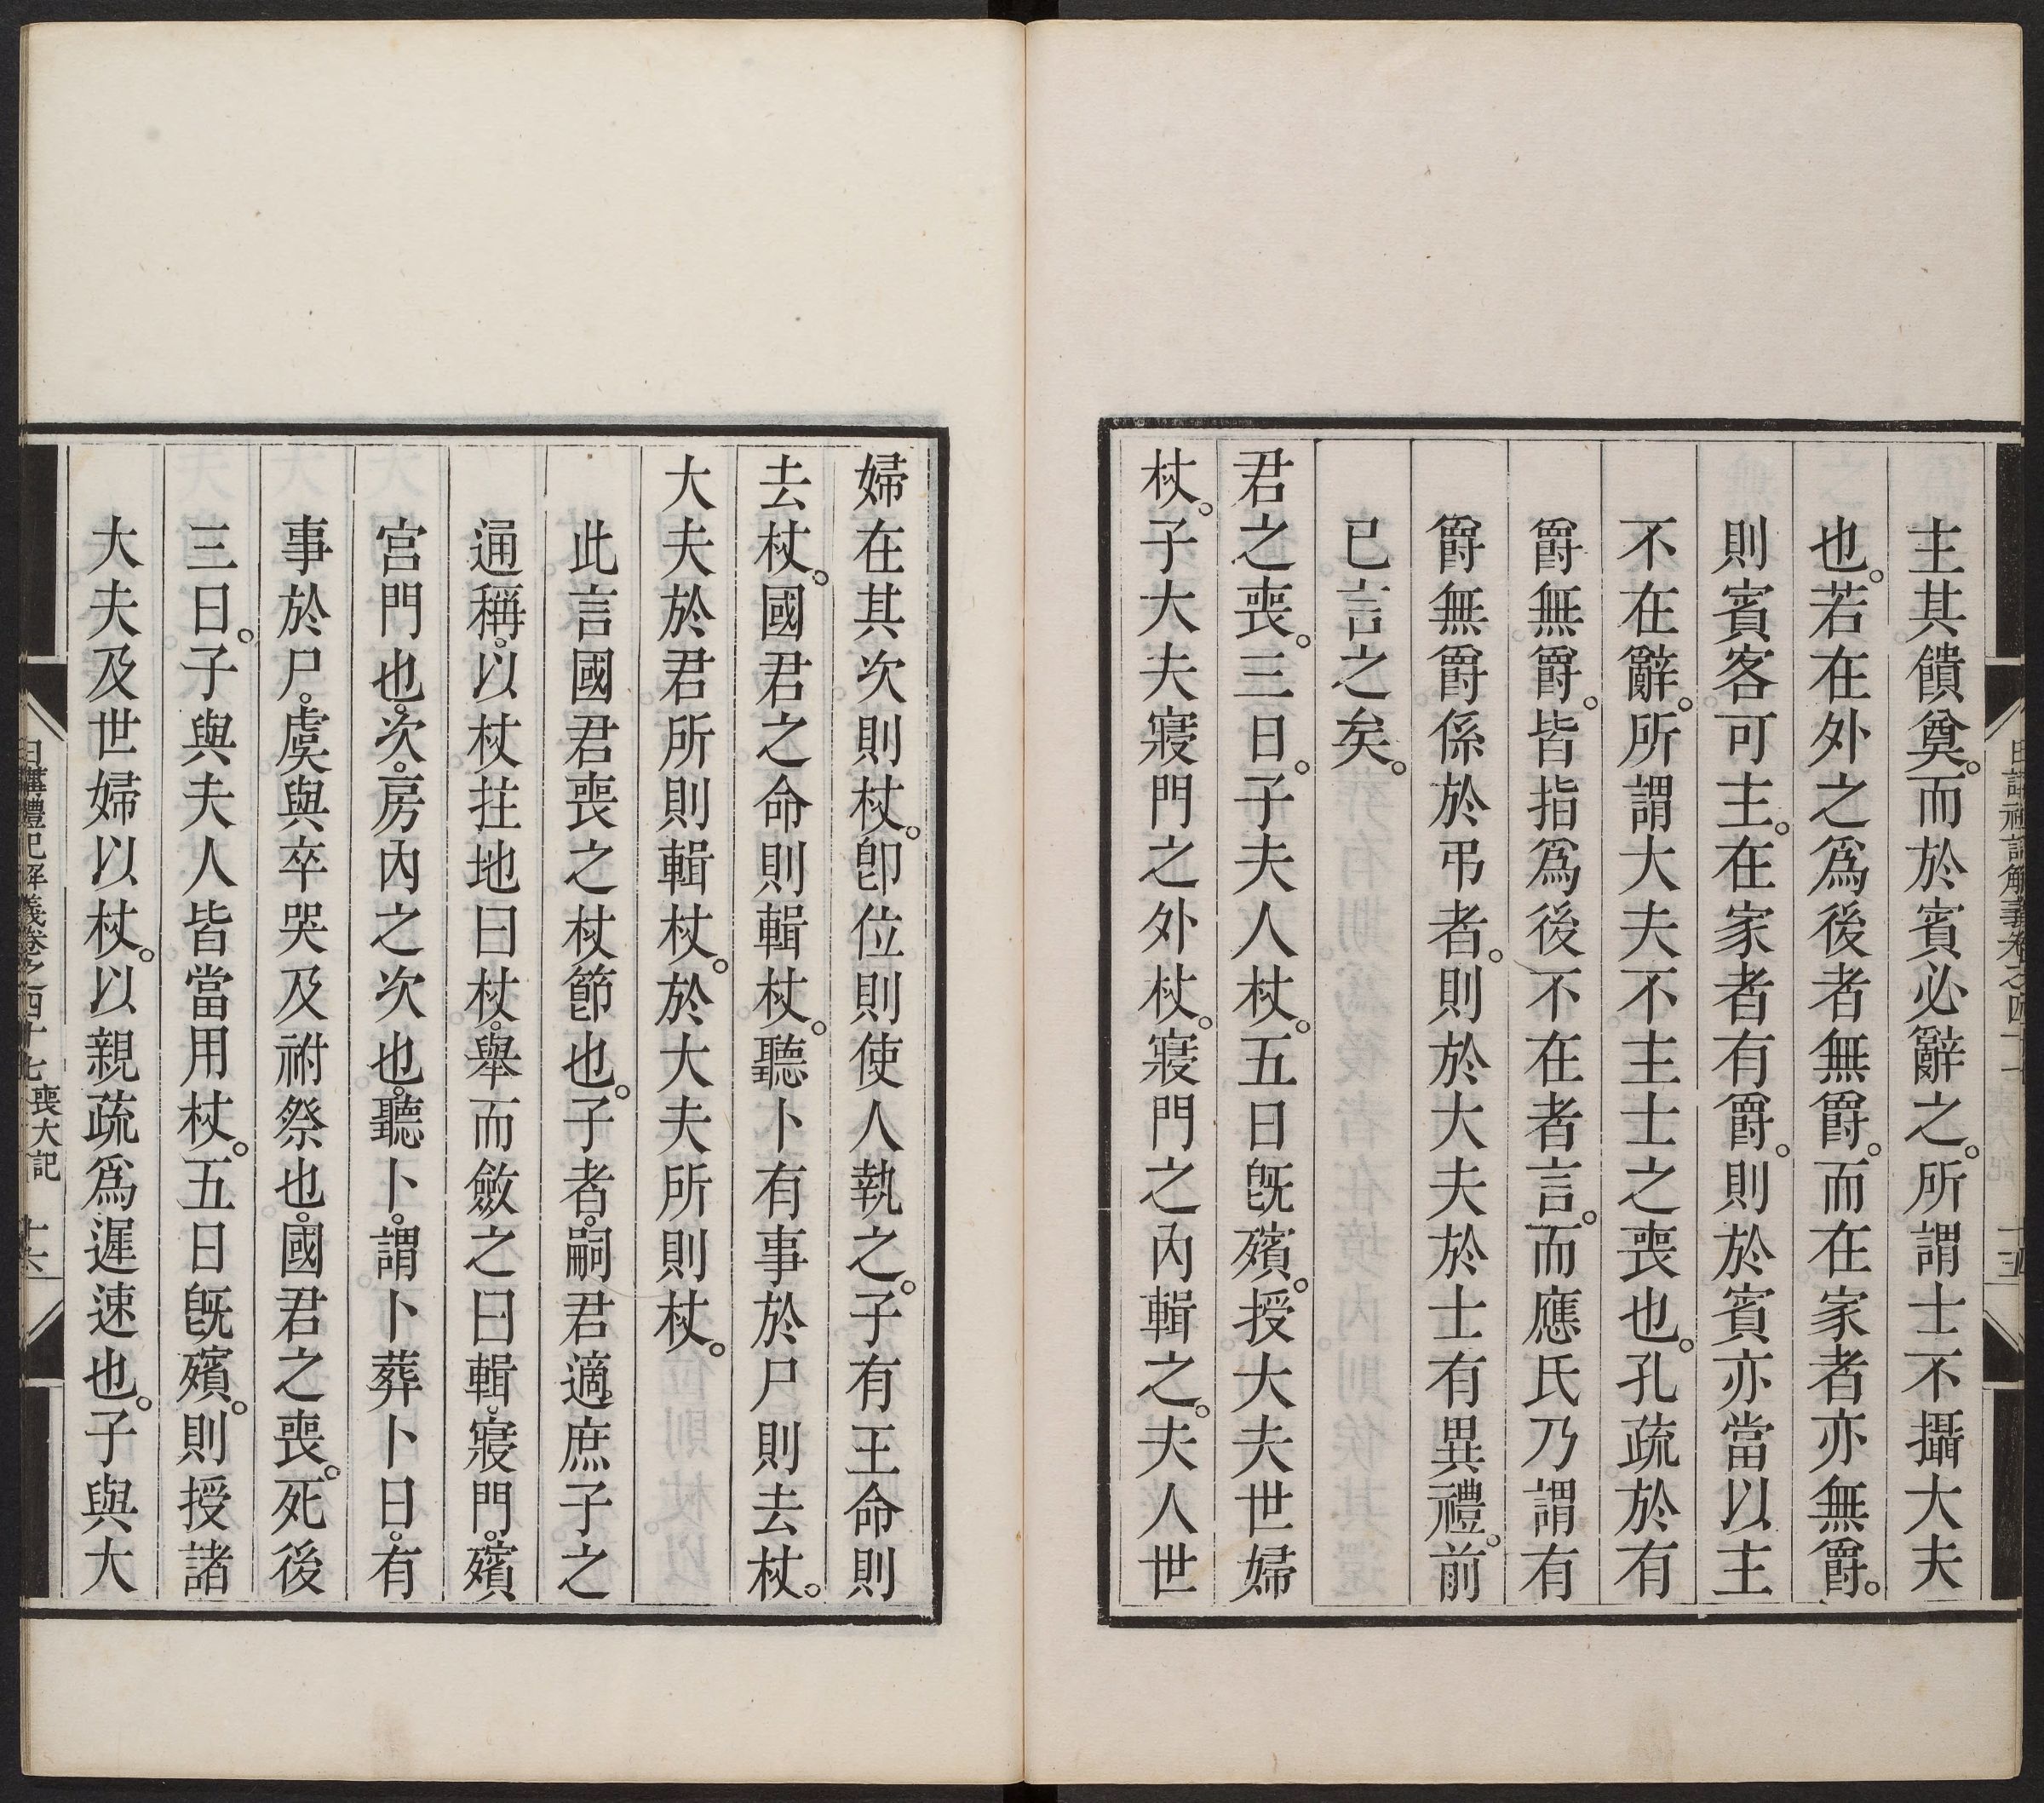 主其饋奠。而於賓必辭之。所謂士不攝大夫
也。若在外之爲後者無爵。而在家者亦無爵。
則賓客可主。在家者有爵。則於賓亦當以主
不在辭。所謂大夫不主士之喪也。孔疏於有
爵無爵。皆指爲後不在者言。而應氏乃謂有
爵無爵係於弔者。則於大夫於士有異禮。前
已言之矣。
君之喪。三日。子夫人杖。五日旣殯。授大夫世婦
杖。子大夫寢門之外杖。寢門之內輯之。夫人世
婦在其次則杖。卽位則使人執之。子有王命則
去杖。國君之命則輯杖。聽卜有事於尸則去杖。
大夫於君所則輯杖。於大夫所則杖。
此言國君喪之杖節也。子者。嗣君適庶子之
通稱。以杖拄地曰杖。舉而斂之曰輯。寢門。殯
宮門也。次。房內之次也。聽卜。謂卜葬卜日。有
事於尸。虞與卒哭及祔祭也。國君之喪。死後
三日。子與夫人皆當用杖。五日旣殯。則授諸
大夫及世婦以杖。以親疏爲遲速也。子與大
日講禮記解義卷之四十七 喪大記 十六